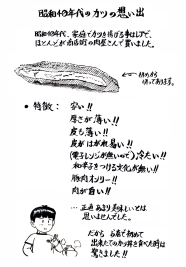 昭和40年代のカツの想い出
昭和40年代、家庭でカツを揚げる事はしずで、
ほとんどが商店街の肉屋さんで買いました。
初めから
切ってあります。
● 特徴： 安い!!
厚さが薄い!!
皮も薄い!!
皮がはがれ易い!!
(電子レンジが無いので)冷たい!!
和辛子をつける文化が無い!!
豚肉オンリー!!
肉が白い!!
… 正直あまり美味しいとは
思いませんでした。
だから お店で初めて
出来たてのカツ丼を食べた時は
驚きました!!